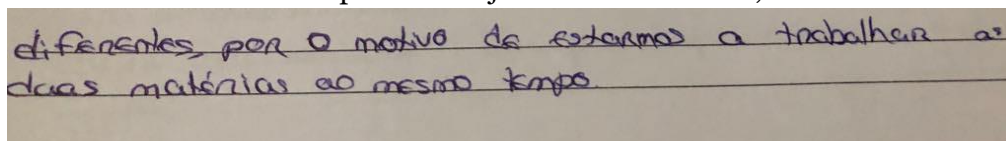 diferentes, por o motivo de estarmos a trabalhar as
duas matérias ao mesmo tempo.